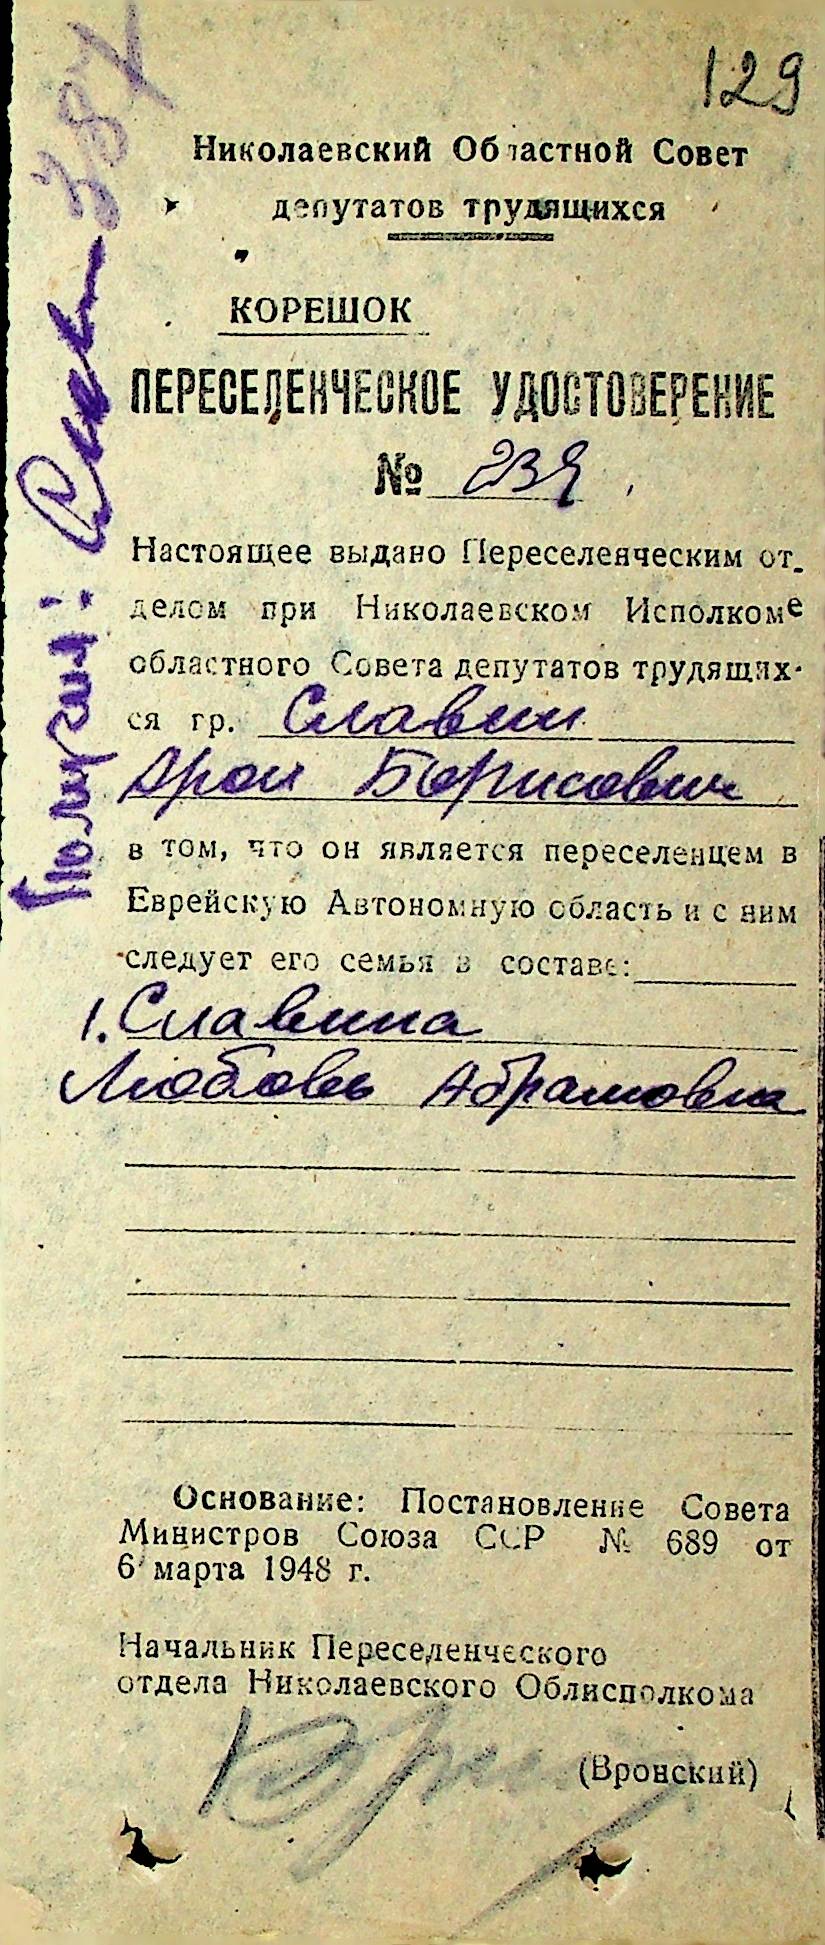 129
387
Николаевский Областной Совет
депутатов трудящихся
КОРЕШОК
ПЕРЕСЕЛЕНЧЕСКОЕ УДОСТОВЕРЕНИЕ
№ 239
Настоящее выдано Переселенческим от-
делом при Николаевском Исполкоме
областного Совета депутатов трудящих-
ся гр. Славин
Арон Борисович
в том, что он является переселенцем в
Еврейскую Автономную область и с ним
следует его семья в составе:
1. Славина
Любовь Абрамовна
Основание: Постановление Совета
Министров Союза ССР № 689 от
6 марта 1948 г.
Начальник Переселенческого
отдела Николаевского Облисполкома
(Вронский)
Получил: